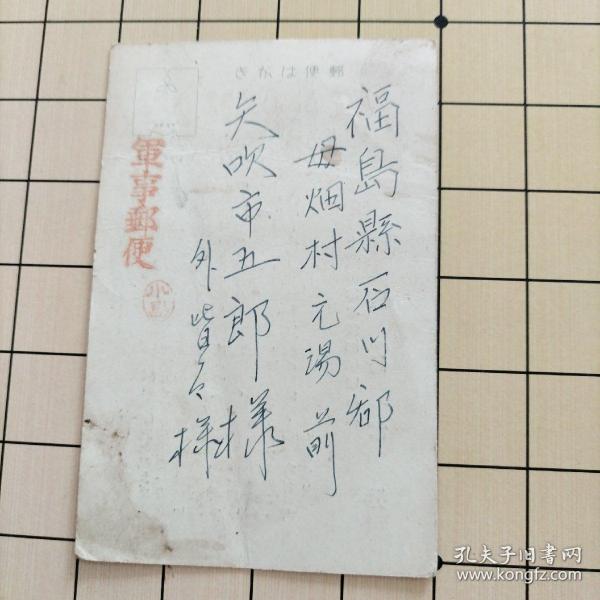 郵便はがき
福島縣石川郡
母畑村元湯前
矢吹市五郎様
外皆々様
軍事郵便
孔夫子旧书网
www.kongfz.com